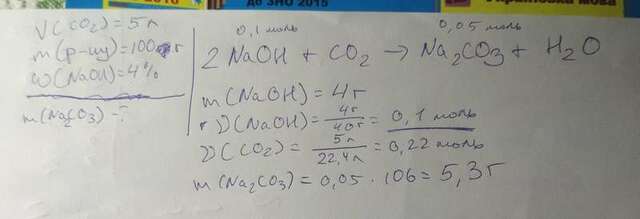 до ЗНО 2015
V(CO₂)=5л
m(р-ну)=100г
ω(NaOH)=4%
m(Na₂CO₃)-?
0,1 моль 0,05 моль
2NaOH + CO₂ → Na₂CO₃ + H₂O
m(NaOH)=4г
ν(NaOH)=4г/40г=0,1 моль
ν(CO₂)=5л/22,4л=0,22 моль
m(Na₂CO₃)=0,05·106=5,3г